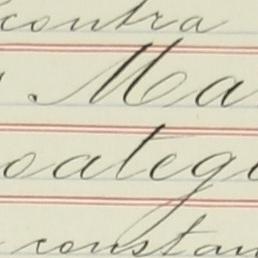 contra
Ma
oateg
constan